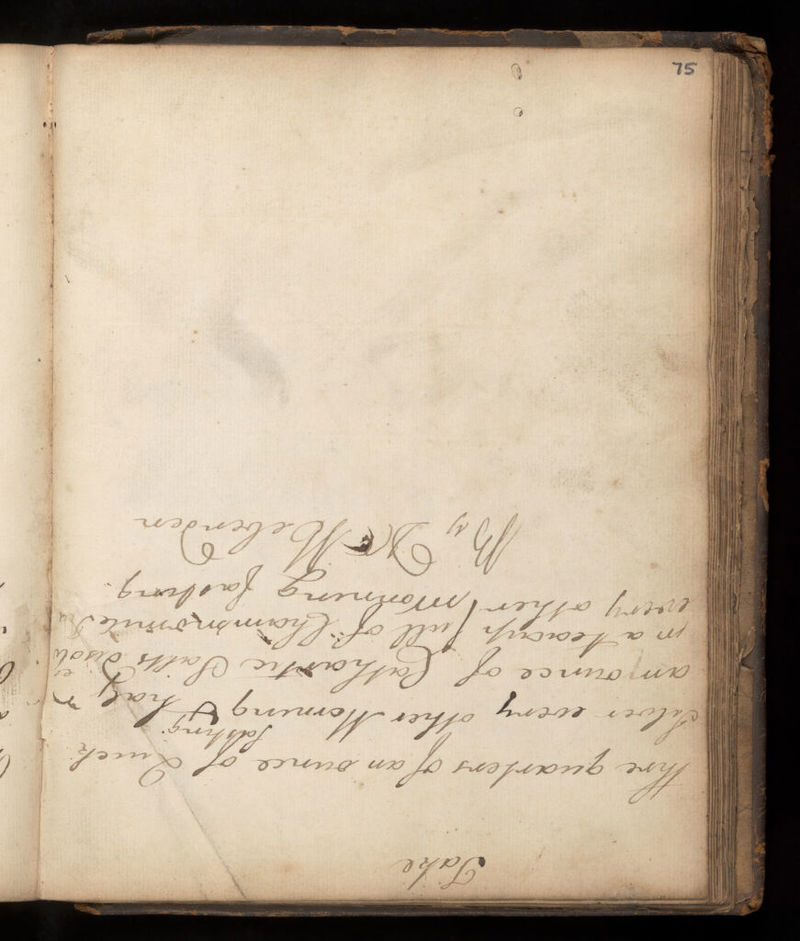 75
Take
thre quarters of an ounce of Quick
Silver every other Morning fasting & half
an ounce of Cathartic Salts disol
in a teacup full of Chammomile
every other morning fasting.
By Dr Heberden